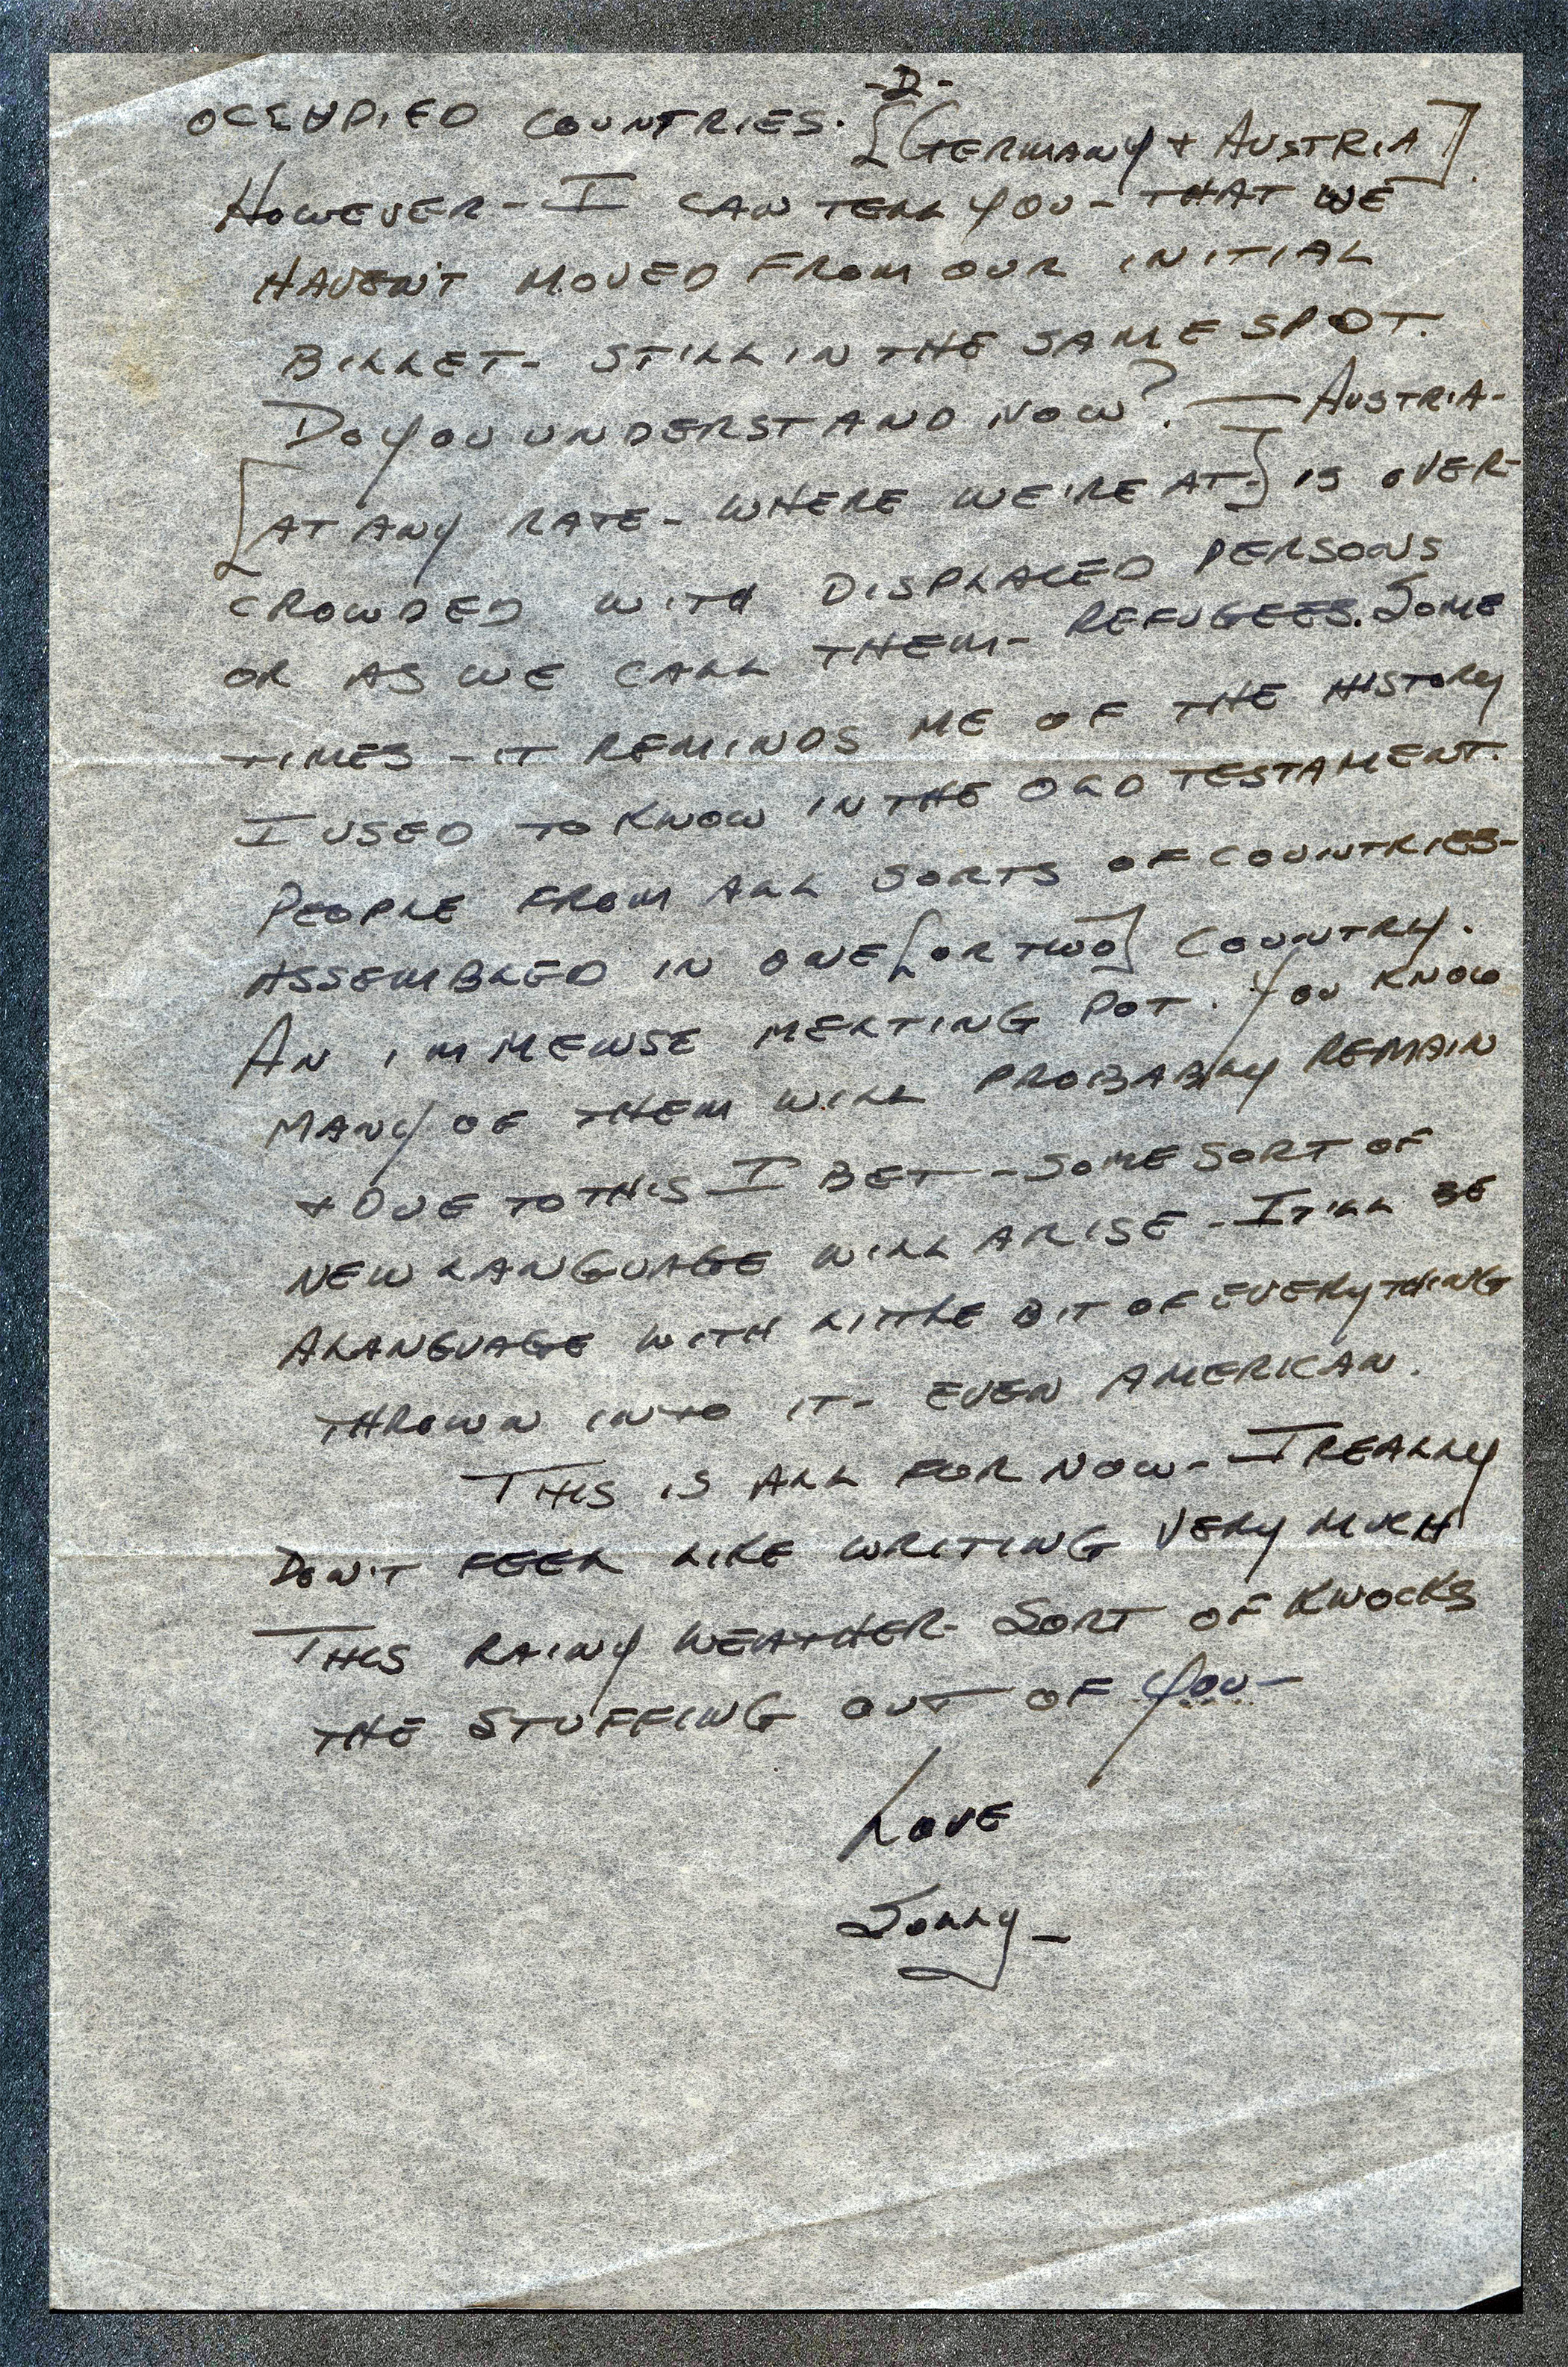 -D-
OCCUPIED COUNTRIES. [GERMANY + AUSTRIA]
HOWEVER - I CAN TELL YOU - THAT WE
HAVEN'T MOVED FROM OUR INITIAL
BILLET - STILL IN THE SAME SPOT.
DO YOU UNDERSTAND NOW? — AUSTRIA -
[AT ANY RATE - WHERE WE'RE AT.] IS OVER-
CROWDED WITH DISPLACED PERSONS
OR AS WE CALL THEM - REFUGEES. SOME
TIMES - IT REMINDS ME OF THE HISTORY
I USED TO KNOW IN THE OLD TESTAMENT.
PEOPLE FROM ALL SORTS OF COUNTRIES -
ASSEMBLED IN ONE [OR TWO] COUNTRY.
AN IMMENSE MELTING POT. YOU KNOW
MANY OF THEM WILL PROBABLY REMAIN
+ DUE TO THIS I BET - SOME SORT OF
NEW LANGUAGE WILL ARISE - IT'LL BE
A LANGUAGE WITH LITTLE BIT OF EVERYTHING
THROWN INTO IT - EVEN AMERICAN.
THIS IS ALL FOR NOW - I REALLY
DON'T FEEL LIKE WRITING VERY MUCH
THIS RAINY WEATHER - SORT OF KNOCKS
THE STUFFING OUT OF YOU -
LOVE
SOLLY -